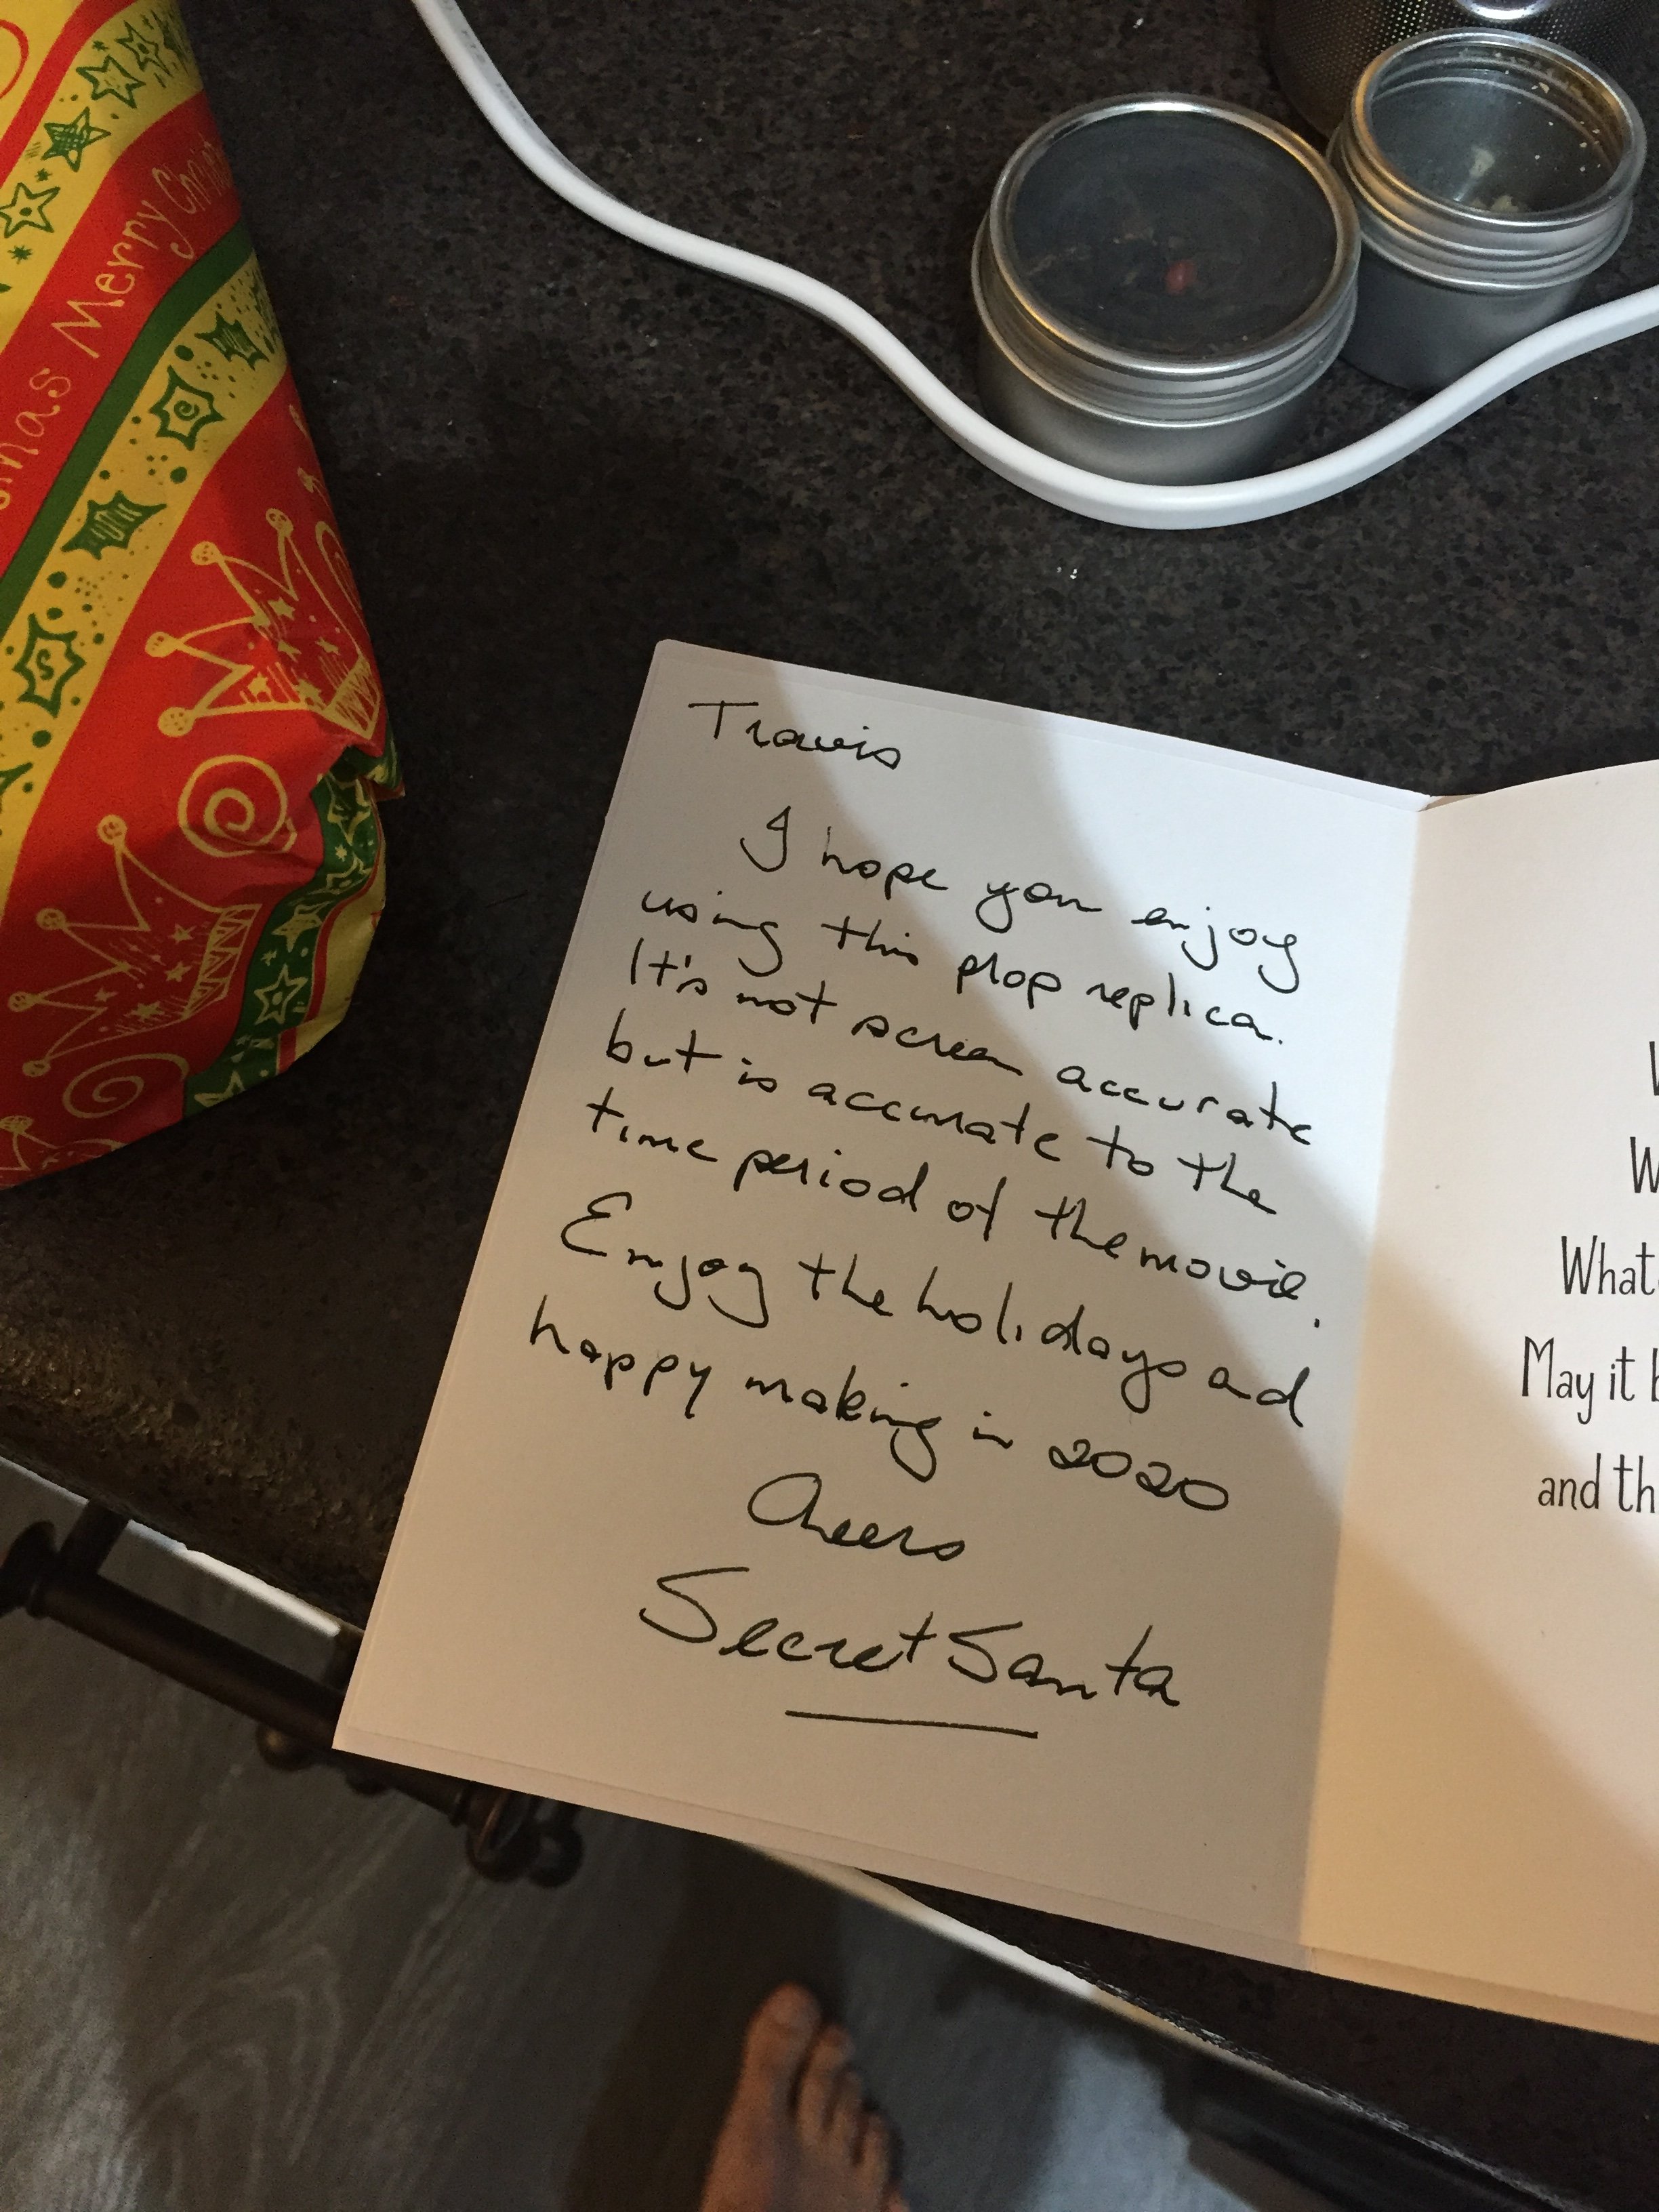 Merry Christmas
Travis
I hope you enjoy
using this prop replica.
It's not screen accurate
but is accurate to the
time period of the movie.
Enjoy the holidays ad
happy making in 2020
Cheers
Secret Santa
May it
and